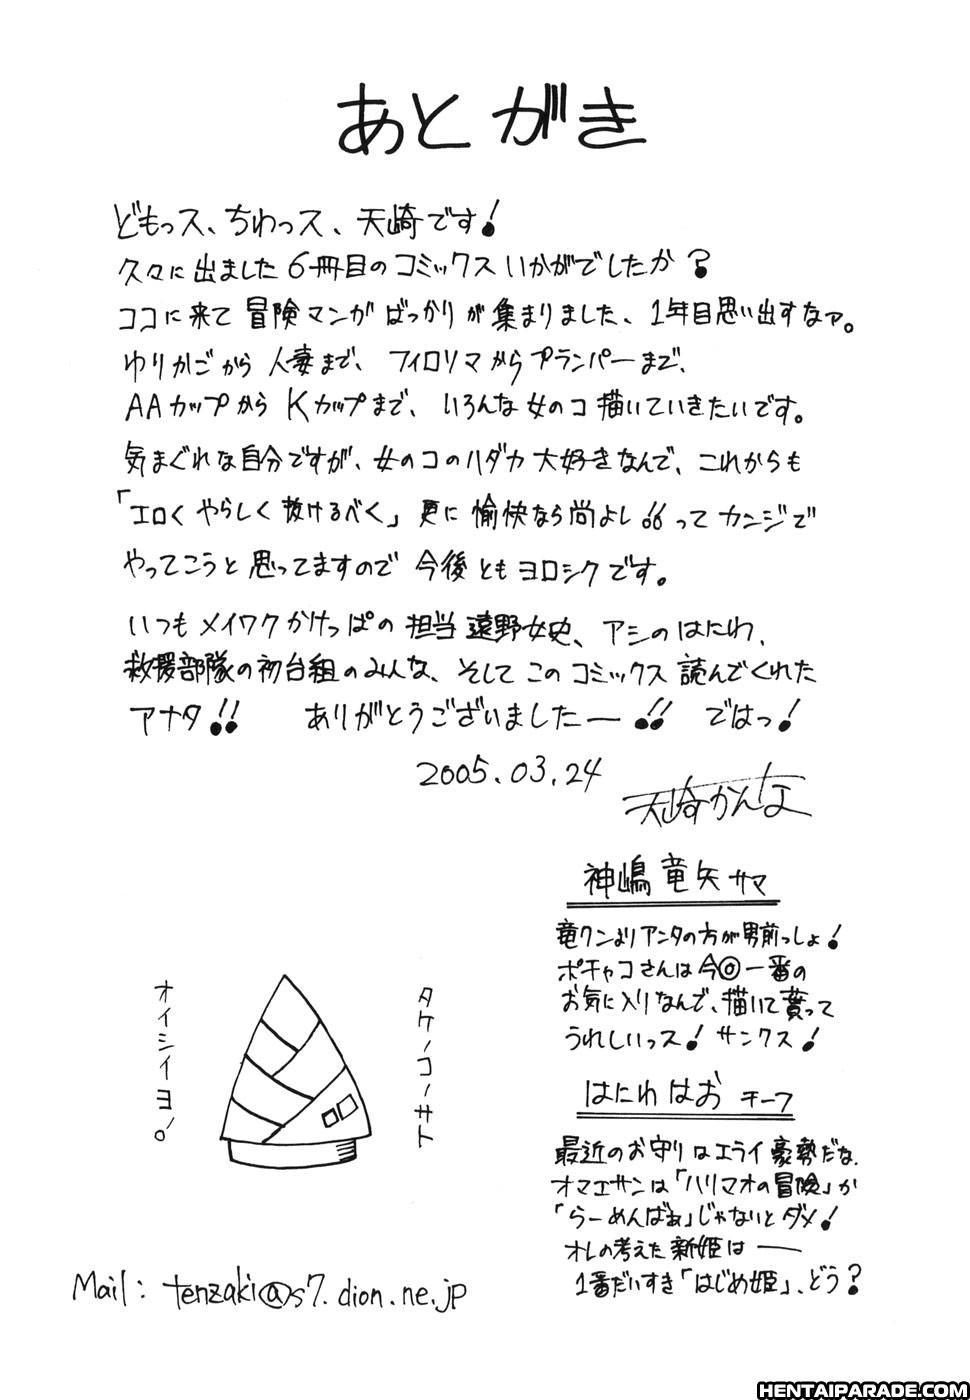 あとがき
どもっス、ちわっス、天崎です!
久々に出ました6冊目のコミックスいかがでしたか?
ココに来て冒険マンガばっかりが集まりました、1年目思い出すなァ。
ゆりかごから人妻まで、フィロリマからプランパーまで、
AAカップからKカップまで、いろんな女のコ描いていきたいです。
気まぐれな自分ですが、女のコのハダカ大好きなんで、これからも
「エロくやらしく抜けるべく」更に愉快なら尚よし!!ってカンジで
やってこうと思ってますので今後ともヨロシクです。
いつもメイワクかけっぱの担当遠野女史、アシのはにわ、
救援部隊の初台組のみんな、そしてこのコミックス読んでくれた
アナタ!! ありがとうございましたー!! ではっ!
2005.03.24
天崎かんな
神嶋竜矢サマ
竜クンよりアンタの方が男前っしょ!
ポチャコさんは今◎一番の
お気に入りなんで、描いて貰って
うれしいっス!サンクス!
はにわはお チーフ
最近のお守りはエライ豪勢だな、
オマエサンは「ハリマオの冒険」か
「らーめんばぁ」じゃないとダメ!
オレの考えた新姫は──
1番だいすき「はじめ姫」、どう?
タケノコノサト
オイシイヨ。
Mail: tenzaki@s7.dion.ne.jp
HENTAIPARADE.COM